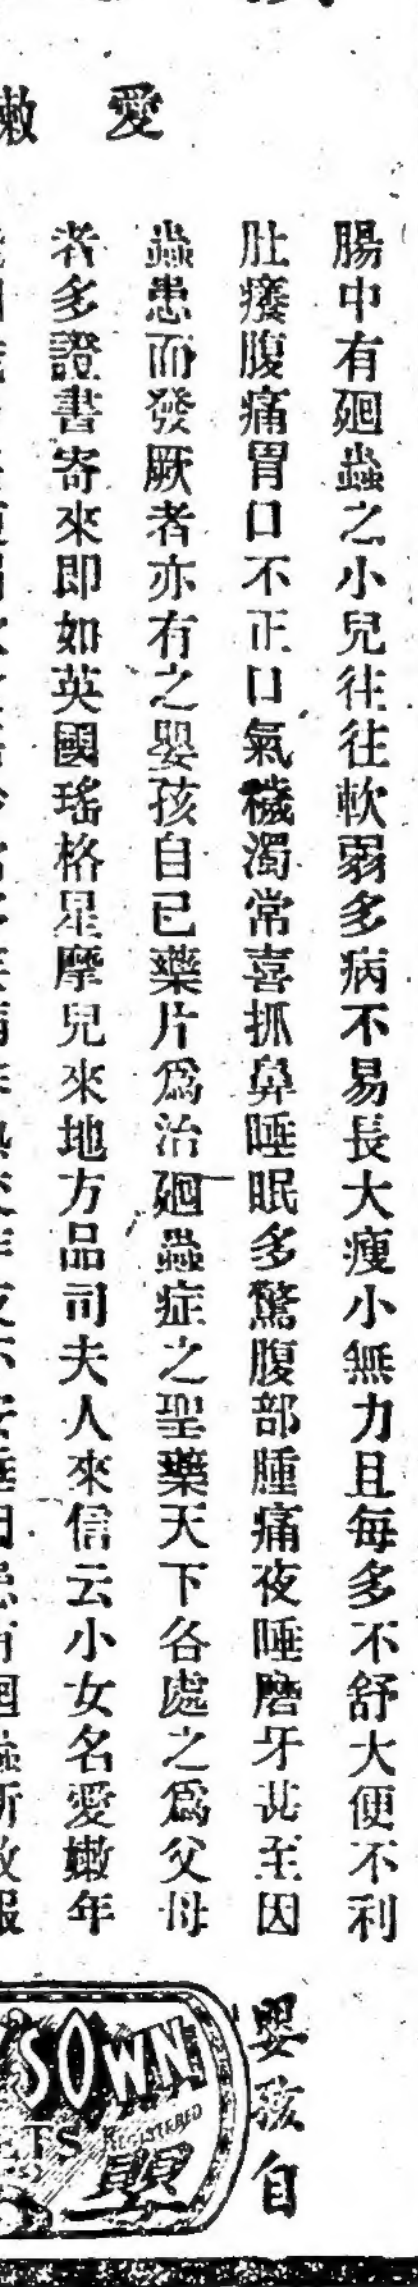 愛
嫩
腸中有廻蟲之小兒往往軟弱多病不易長大瘦小無力且每多不舒大便不利
肚癢腹痛胃口不正口氣穢濁常喜抓鼻睡眠多驚腹部腫痛夜睡磨牙甚至因
蟲患而發厥者亦有之嬰孩自己藥片爲治廻蟲症之聖藥天下各處之爲父母
者多證書寄來即如英國瑤格星摩兒來地方品司夫人來信云小女名愛嫩年
嬰孩自
SOWN
TS REGISTERED
嬰